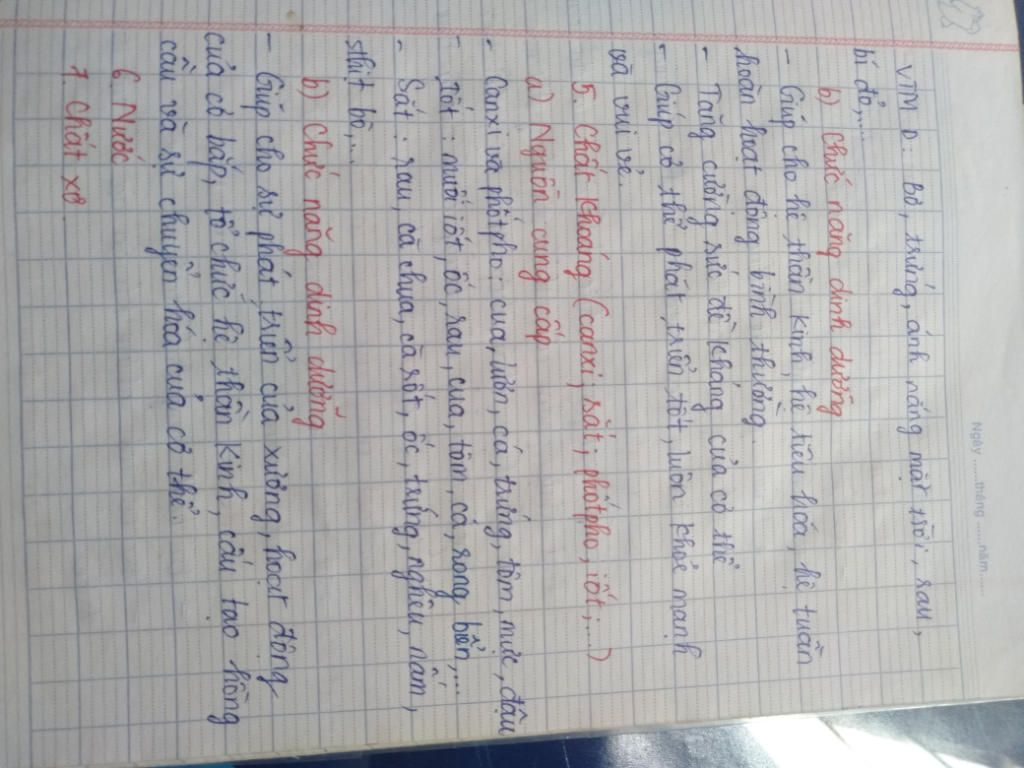 Ngày ......tháng ......năm......
VTM D: Bơ, trứng, ánh nắng mặt trời, rau,
bí đỏ,...
b) Chức năng dinh dưỡng
- Giúp cho hệ thần kinh, hệ tiêu hoá, hệ tuần
hoàn hoạt động bình thường.
- Tăng cường sức đề kháng của cơ thể
- Giúp cơ thể phát triển tốt, luôn khoẻ mạnh
và vui vẻ.
5. Chất khoáng (canxi; sắt; phótpho, iốt;...)
a) Nguồn cung cấp
- Canxi và phốtpho: cua, lươn, cá, trứng, tôm, mực, đậu
- Iốt: muối iốt, ốc, rau, cua, tôm, cá, rong biển,...
- Sắt: rau, cà chua, cà rốt, ốc, trứng, nghêu, nấm,
thịt bò,...
b) Chức năng dinh dưỡng
- Giúp cho sự phát triển của xương, hoạt động
của cơ bắp, tổ chức hệ thần kinh, cấu tạo hồng
cầu và sự chuyển hóa của cơ thể.
6. Nước
7. Chất xơ